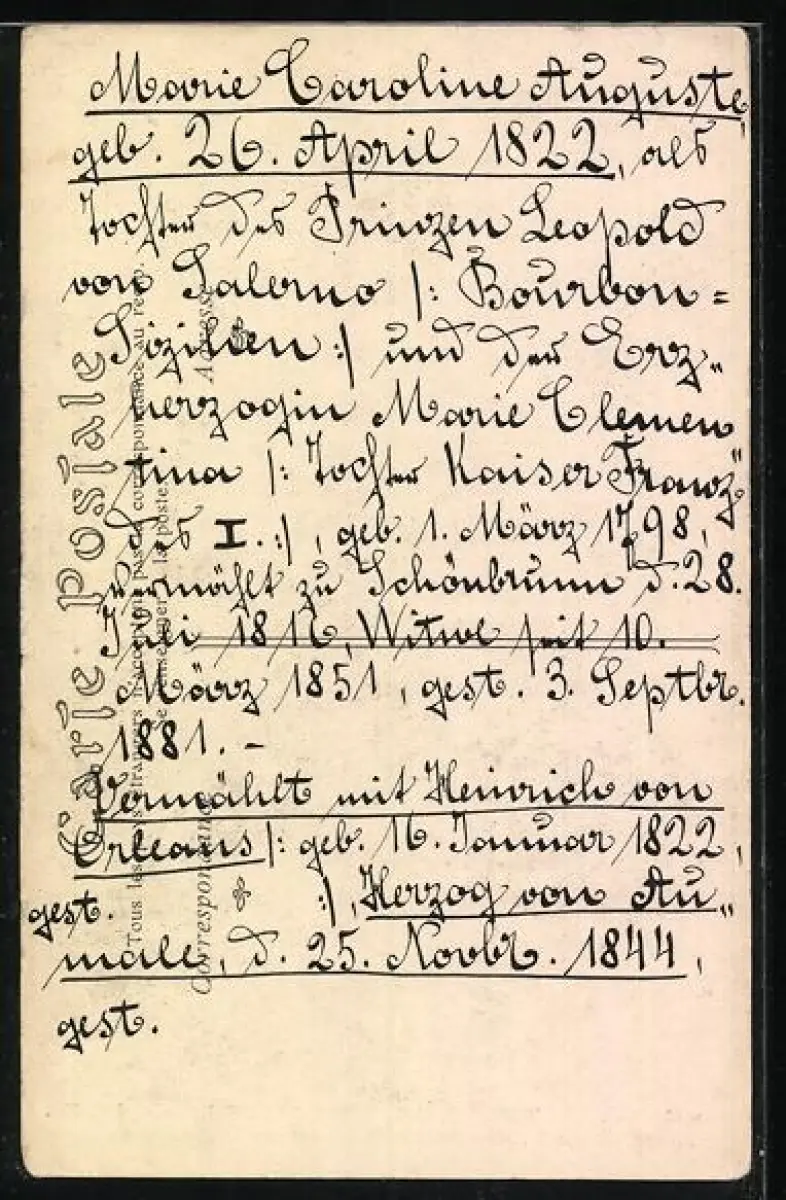 Marie Caroline Auguste,
geb. 26. April 1822, als
Tochter des Prinzen Leopold
von Salerno /: Bourbon=
Sizilien :/ und der Erz„
herzogin Marie Clemen„
tina /: Tochter Kaiser Franz
des I. :/, geb. 1. März 1798,
vermählt zu Schönbrunn d. 28.
Juli 1816, Witwe seit 10.
März 1851, gest. 3. Septbr.
1881. –
Vermählt mit Heinrich von
Orleans /: geb. 16. Januar 1822,
gest. :/, Herzog von Au„
male, d. 25. Novbr. 1844,
gest.
Carte Postale
Correspondance
Adresse